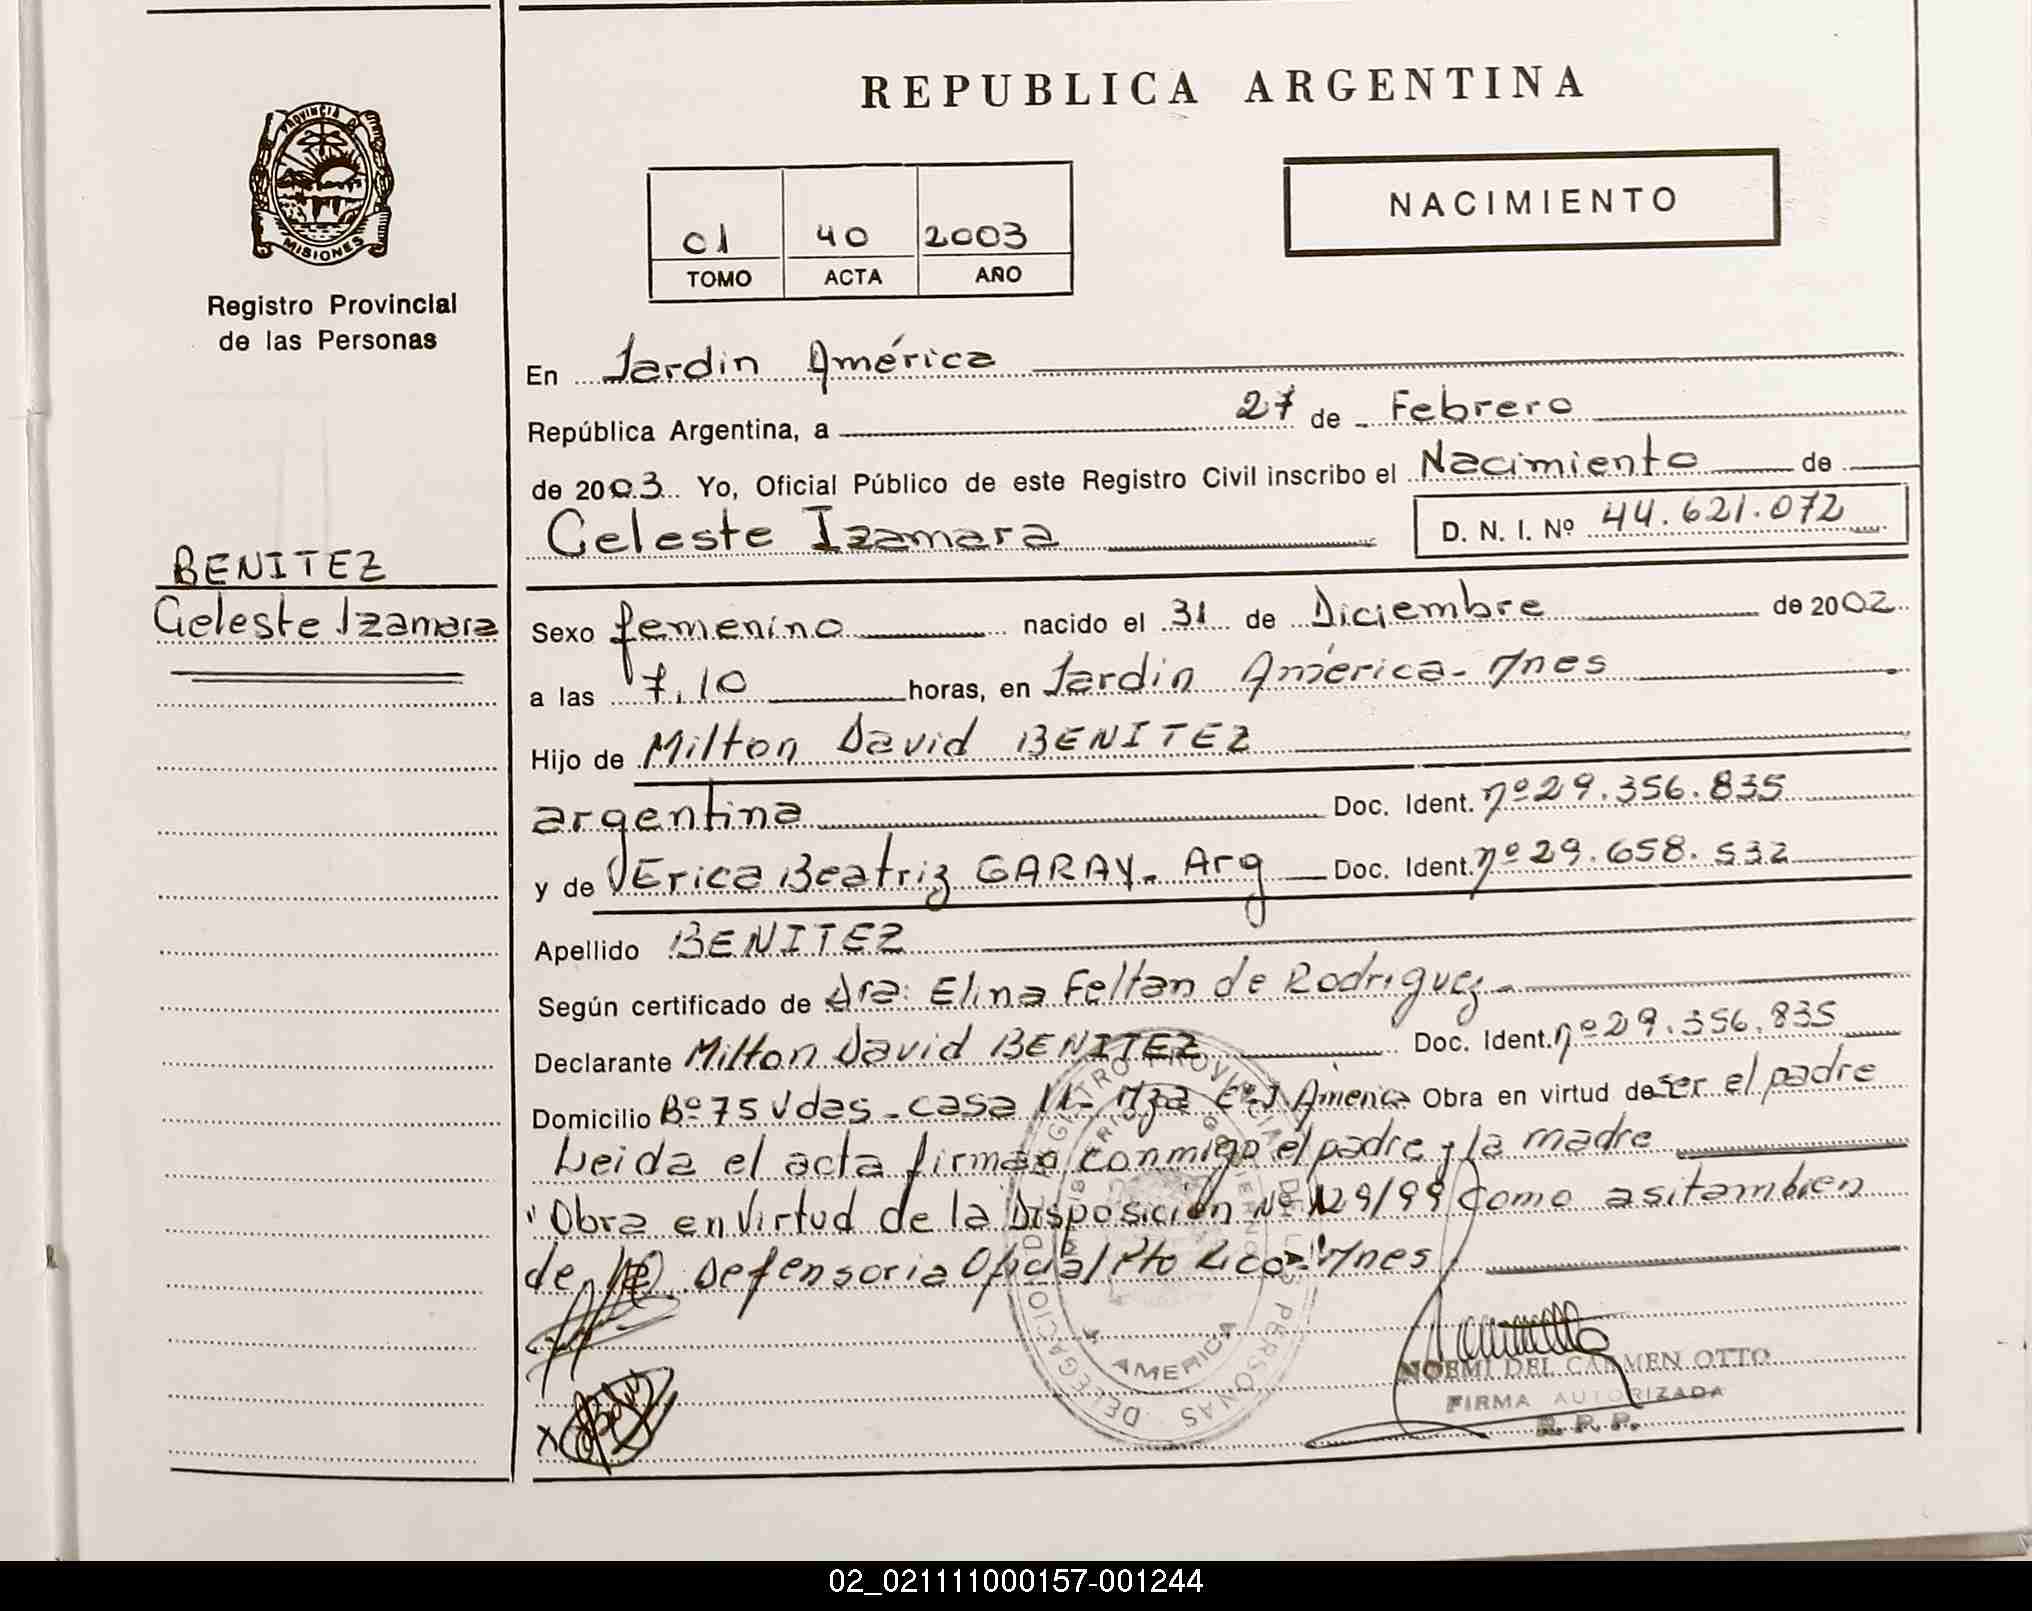 REPUBLICA ARGENTINA
PROVINCIA DE MISIONES
Registro Provincial
de las Personas
01 40 2003
TOMO ACTA AÑO
NACIMIENTO
En Jardin América
República Argentina, a 27 de Febrero
de 2003 Yo, Oficial Público de este Registro Civil inscribo el Nacimiento de
Celeste Izamara D. N. I. Nº 44.621.072
BENITEZ
Celeste Izamara
Sexo femenino nacido el 31 de Diciembre de 2002
a las 7,10 horas, en Jardin América - Mnes
Hijo de Milton David BENITEZ
argentina Doc. Ident. nº 29.356.835
y de Erica Beatriz GARAY. Arg Doc. Ident. nº 29.658.532
Apellido BENITEZ
Según certificado de Dra: Elina Feltan de Rodriguez
Declarante Milton David BENITEZ Doc. Ident. nº 29.356.835
Domicilio Bº 75 Vdas - casa 11 - Mza E - J América Obra en virtud de ser el padre
Leida el acta firman conmigo el padre y la madre
"Obra en Virtud de la Disposición Nº 129/99 como asitambien
de la Defensoria Oficial Pto Rico" Mnes
REGISTRO PROVINCIAL DE LAS PERSONAS DELEGACION
AMERICA
NOEMI DEL CARMEN OTTO
FIRMA AUTORIZADA
R. P. P.
02_021111000157-001244